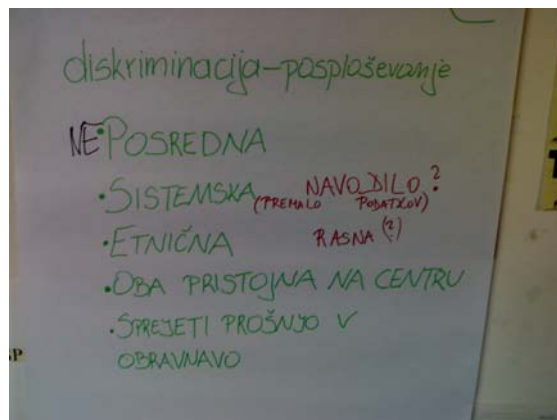 diskriminacija-posploševanje
NE•POSREDNA
•SISTEMSKA NAVODILO?
(PREMALO PODATKOV)
•ETNIČNA RASNA (?)
•OBA PRISTOJNA NA CENTRU
•SPREJETI PROŠNJO V
OBRAVNAVO